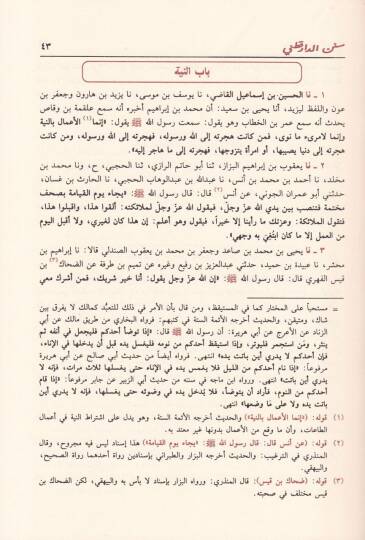 سنن الدارقطني
٤٣
باب النية
١ - نا الحسين بن إسماعيل القاضي، نا يوسف بن موسى، نا يزيد بن هارون وجعفر بن
عون واللفظ ليزيد، أنا يحيى بن سعيد: أن محمد بن إبراهيم أخبره أنه سمع علقمة بن وقاص
يحدث أنه سمع عمر بن الخطاب وهو يقول: سمعت رسول الله ﷺ يقول: «إنما(١) الأعمال بالنية
وإنما لامرىء ما نوى، فمن كانت هجرته إلى الله ورسوله، فهجرته إلى الله ورسوله، ومن كانت
هجرته إلى دنيا يصيبها، أو امرأة يتزوجها، فهجرته إلى ما هاجر إليه».
٢ - نا يعقوب بن إبراهيم البزاز، نا أبو حاتم الرازي، نا الحجبي، ح، ونا محمد بن
مخلد، نا أحمد بن محمد بن أنس، نا عبدالله بن عبدالوهاب الحجبي، نا الحارث بن غسان،
حدثني أبو عمران الجوني، عن أنس(٢) قال: قال رسول الله ﷺ: «يجاء يوم القيامة بصحف
مختمة فتنصب بين يدي الله عز وجل، فيقول الله عز وجل لملائكته: ألقوا هذا، واقبلوا هذا،
فتقول الملائكة: وعزتك ما رأينا إلا خيراً، فيقول وهو أعلم: إن هذا كان لغيري، ولا أقبل اليوم
من العمل إلا ما كان ابتُغِيَ به وجهي».
٣ - نا يحيى بن محمد بن صاعد وجعفر بن محمد بن يعقوب الصندلي قالا: نا إبراهيم بن
محشر، نا عبيدة بن حميد، حدثني عبدالعزيز بن رفيع وغيره عن تميم بن طرفة عن الضحاك(٣) بن
قيس الفهري قال: قال رسول الله ﷺ: «إن الله عز وجل يقول: أنا خير شريك، فمن أشرك معي
= مستحباً على المختار كما في المستيقظ، ومن قال بأن الأمر في ذلك للتعبُّد كمالك لا يفرق بين
شاك، ومتيقن، والحديث أخرجه الأئمة الستة في كتبهم: فرواه البخاري من طريق مالك عن أبي
الزناد عن الأعرج عن أبي هريرة: أن رسول الله ﷺ قال: «إذا توضأ أحدكم فليجعل في أنفه ثم
ينثر، ومن استجمر فليوتر، وإذا استيقظ أحدكم من نومه فليغسل يده قبل أن يدخلها في الإناء،
فإن أحدكم لا يدري أين باتت يده» انتهى. فرواه أيضاً من حديث أبي صالح عن أبي هريرة
مرفوعاً: «إذا قام أحدكم من الليل فلا يغمس يده في الإناء حتى يغسلها ثلاث مرات، فإنه لا
يدري أين باتت يده» انتهى. ورواه ابن ماجه في سننه من حديث أبي الزبير عن جابر مرفوعاً: «إذا قام
أحدكم من النوم، فأراد أن يتوضأ، فلا يدخل يده في وضوئه حتى يغسلها، فإنه لا يدري أين
باتت يده ولا على ما وضعها» انتهى.
(١) قوله: («إنما الأعمال بالنية») والحديث أخرجه الأئمة الستة، وهو يدل على اشتراط النية في أعمال
الطاعات، وأن ما وقع من الأعمال بدونها غير معتد به.
(٢) قوله: (عن أنس قال: قال رسول الله ﷺ: «يجاء يوم القيامة») هذا إسناد ليس فيه مجروح، وقال
المنذري في الترغيب: والحديث أخرجه البزار والطبراني بإسنادين رواة أحدهما رواة الصحيح،
والبيهقي.
(٣) قوله: (ضحاك بن قيس): قال: المنذري: ورواه البزار بإسناد لا بأس به والبيهقي، لكن الضحاك بن
قيس مختلف في صحبته.